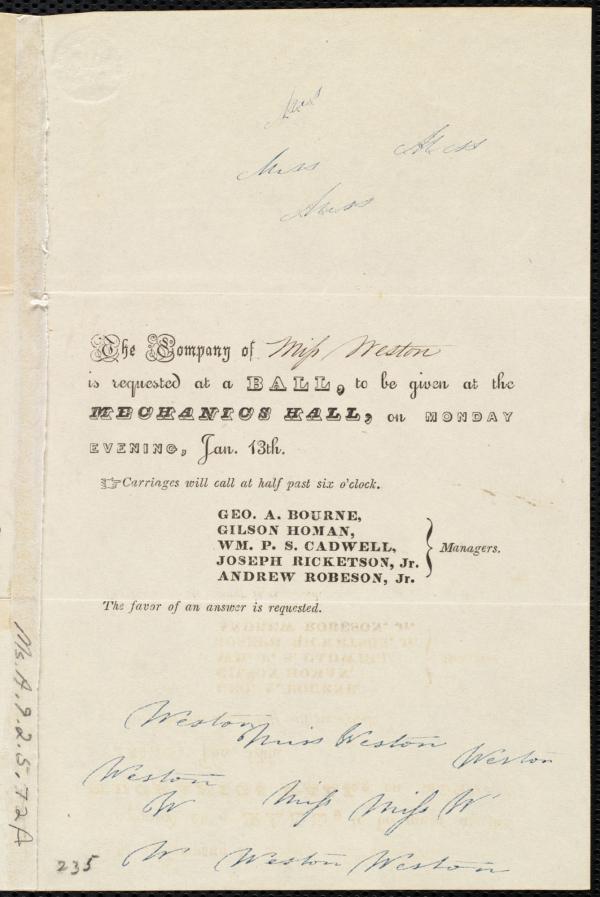 Miss
Miss
Miss
Miss
The Company of Miss Weston
is requested at a BALL, to be given at the
MECHANICS HALL, on MONDAY
EVENING, Jan. 13th.
☞Carriages will call at half past six o'clock.
GEO. A. BOURNE,
GILSON HOMAN,
WM. P. S. CADWELL,
JOSEPH RICKETSON, Jr.
ANDREW ROBESON, Jr.
Managers.
The favor of an answer is requested.
Weston
Miss Weston
Weston
Weston
W Miss Miss W
W Weston Weston
235
Ms.A.9.2.5,72A